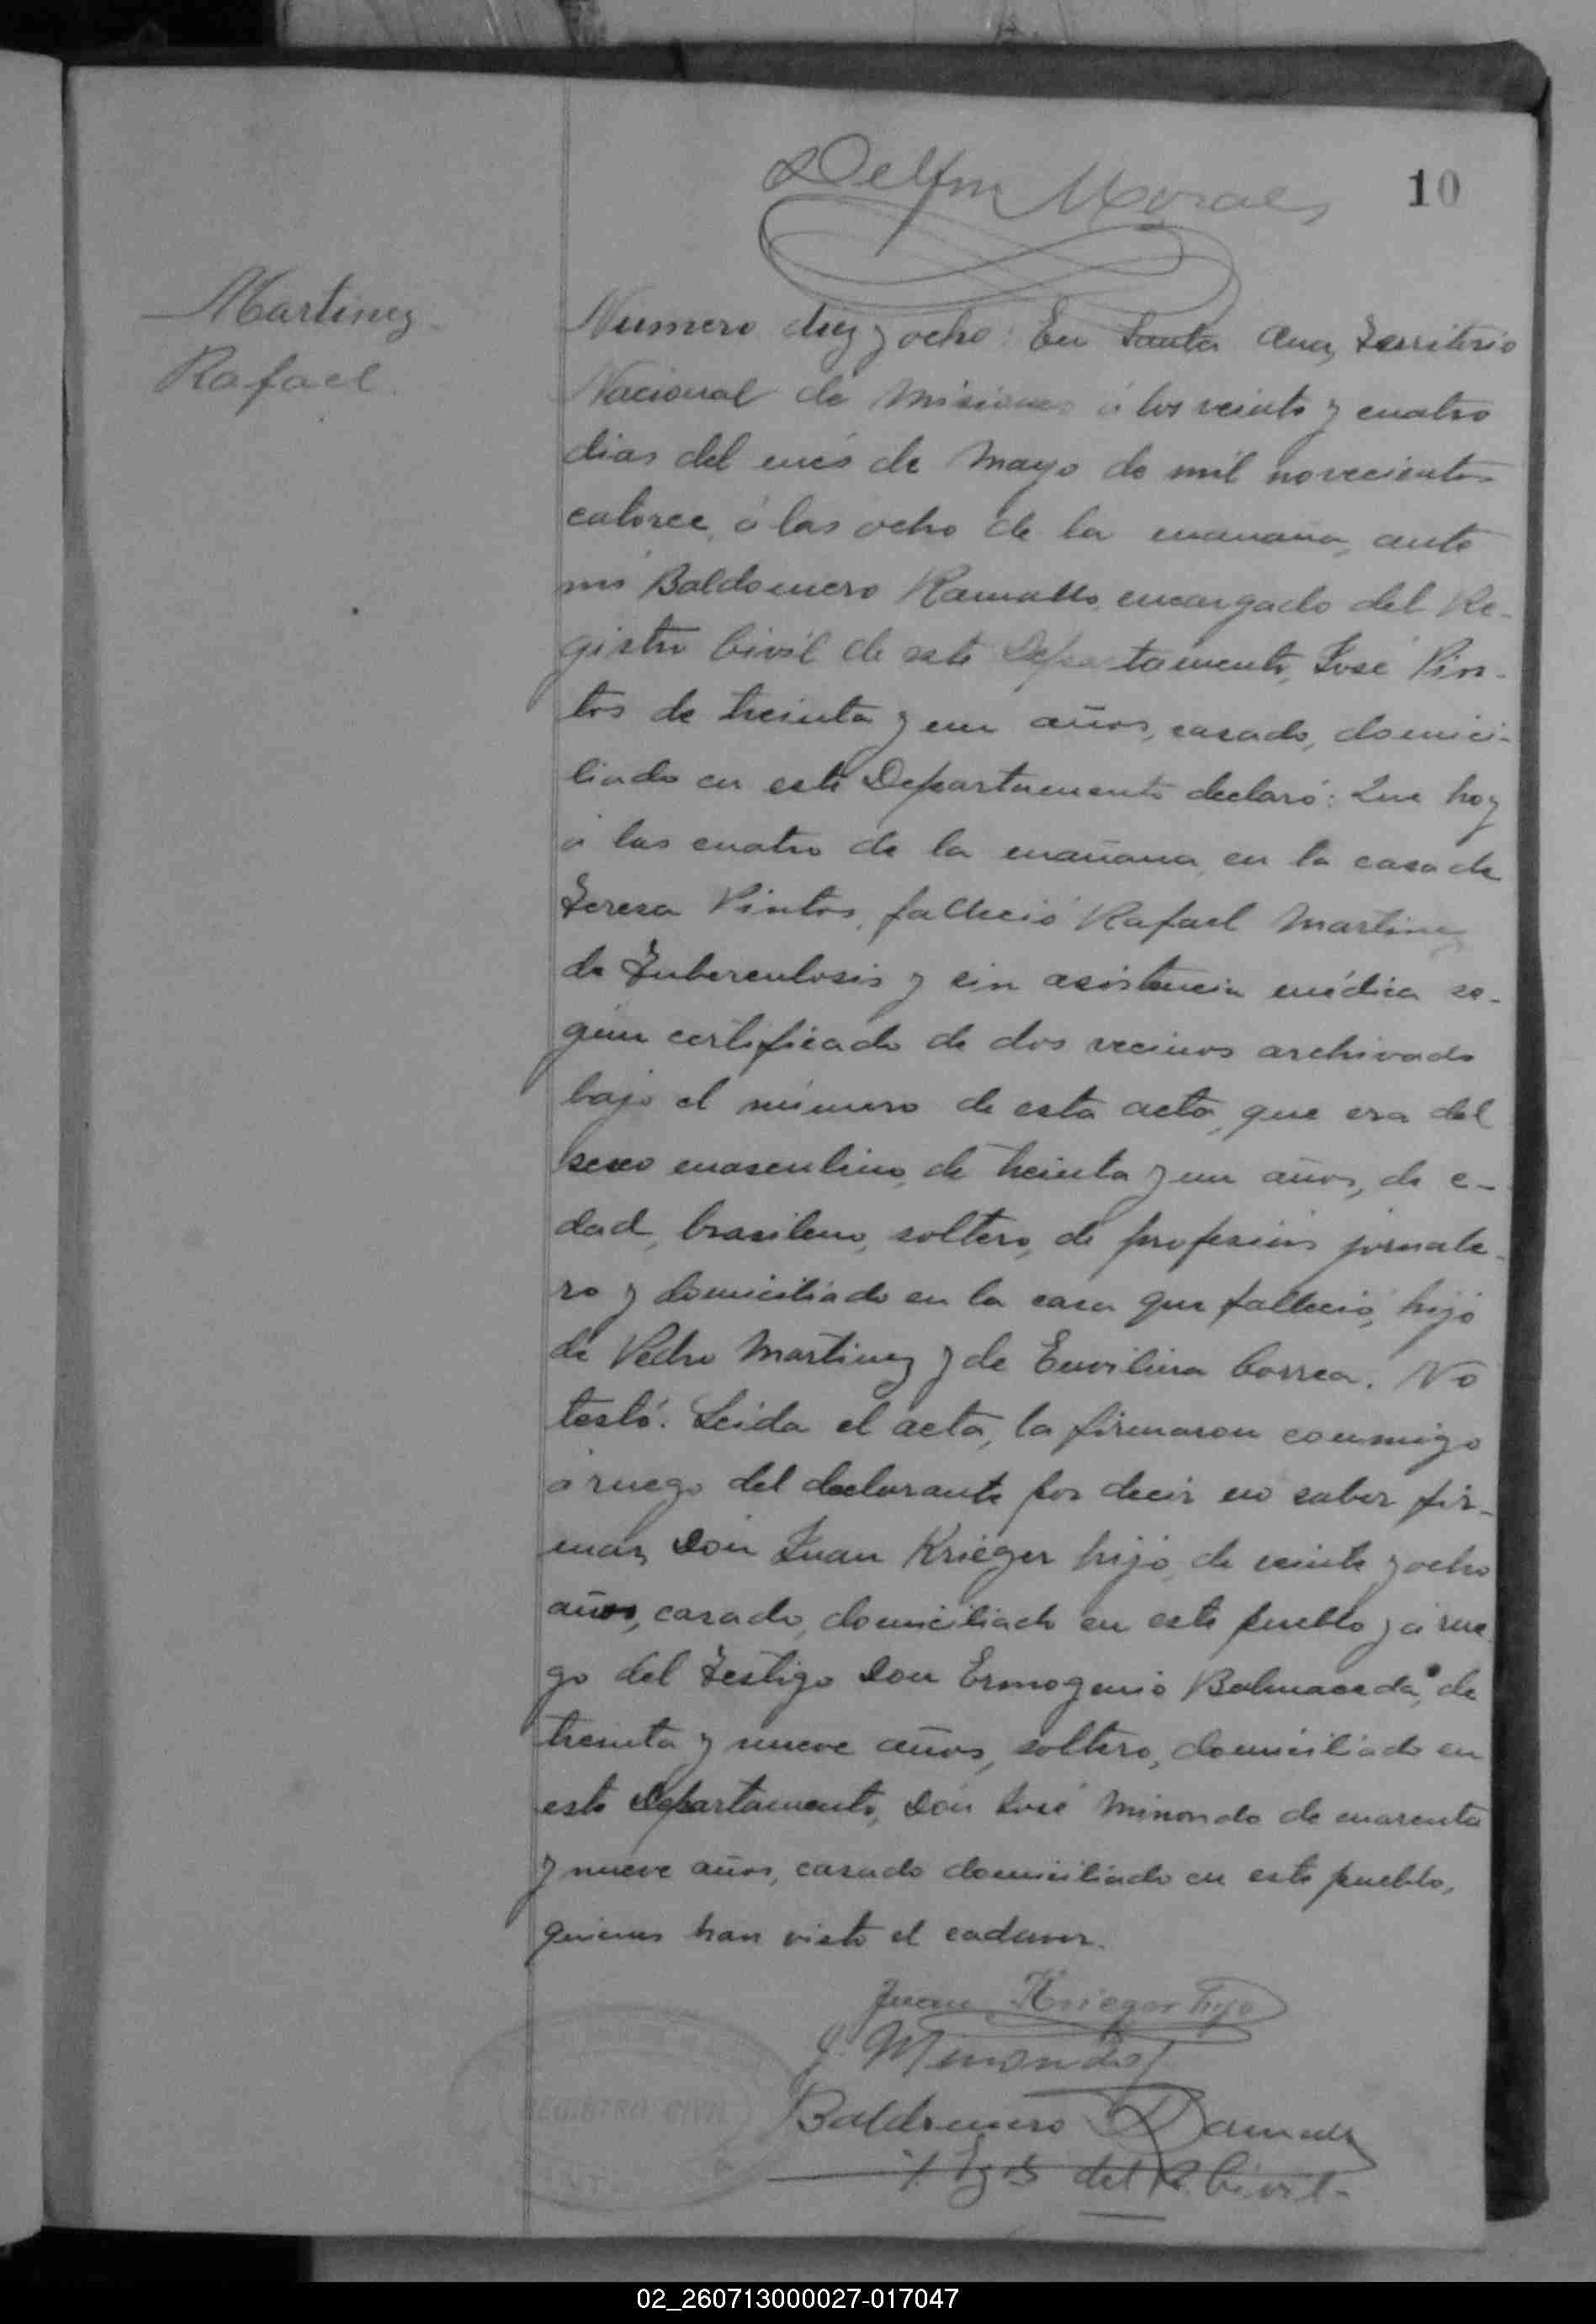 Delfin Morales
10
Martinez
Rafael.
Numero diez y ocho: En Santa Ana, Territorio
Nacional de Misiones á los veinte y cuatro
dias del més de Mayo de mil novecientos
catorce, á las ocho de la mañana, ante
mi Baldomero Ramallo, encargado del Re-
gistro Civil de este Departamento, José Pin-
tos de treinta y un años, casado, domici-
liado en este Departamento declaró: Que hoy
á las cuatro de la mañana, en la casa de
Teresa Pintos, falleció Rafael Martinez
de Tuberculosis y sin asistencia médica se-
gún certificado de dos vecinos archivado
bajo el número de esta acta, que era del
sexo masculino, de treinta y un años, de e-
dad, brasilero, soltero, de profesión jornale-
ro y domiciliado en la casa que falleció, hijo
de Pedro Martinez y de Correa. No
testó. Leida el acta, la firmaron conmigo
á ruego del declarante por decir no saber fir-
mar, Don Juan Krieger hijo, de veinte y ocho
años, casado, domiciliado en este pueblo y á rue
go del Testigo Don Ermogenio Balmaceda, de
treinta y nueve años, soltero, domiciliado en
este Departamento, Don José Minondo de cuarenta
y nueve años, casado domiciliado en este pueblo,
quienes han visto el cadaver.
Juan Krieger hijo
J. Minondo
Baldomero Ramallo
del R. Civil-
REGISTRO CIVIL
02_260713000027-017047